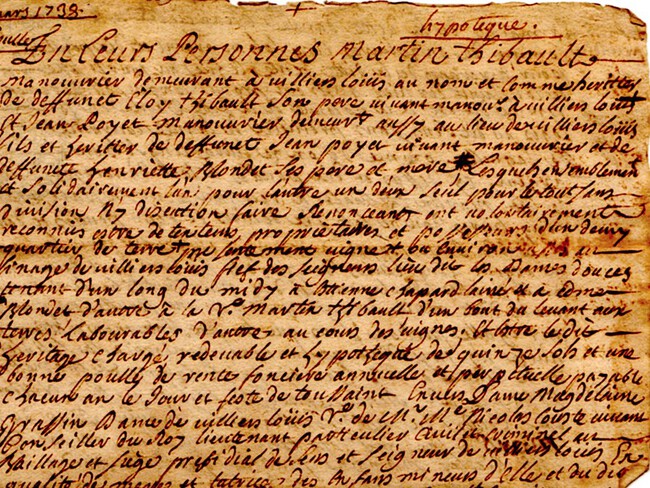 mars 1738
hypoteque.
En Leurs Personnes Martin Thibault
manouvrier demeurant a villiers loüis au nom et comme heritier
de deffunct Eloy thibault Son pere vivant manouv. a villiers louis
Et Jean Poyet manouvrier demeurt aussy au lieu de villiers loüis
fils et heritier de deffunct Jean poyet vivant manouvrier et de
deffuncte henriette Blondet Ses pere et mere Lesquels ensemblement
et Solidairement l'un pour Lautre un deux Seul pour le tout sans
division Ny discution faire Renonceant ont volontairement
reconnus estre detenteurs proprietaires et possesseurs d'un demy
quartier de terre presentement vigne ou environ assis au
finage de villiers loüis fief des seigneurs lieu dit les Dames douces
tenant d'un long du midy a Etienne chapard laine et a edme
Blondet d'autre a la Ve Martin thibault d'un bout du levant aux
terres Labourables d'autre au cours des vignes. Et Estre le dit
heritage chargé redevable et hypothequé de quinze sols et une
bonne poulle de rente fonciere annuelle et perpetuelle payable
chacun an le Jour et feste de toussaint Envers Dame Magdelaine
Grassin Dame de villiers loüis Ve de Mr. Me Nicolas Couste vivant
Conseiller du Roy lieutenant particulier Civil et Criminel au
Baillage et siege presidial de Sens et Seigneur de villiers louis En
qualité de mere et tutrice des Enfans mineurs d'Elle et du dit